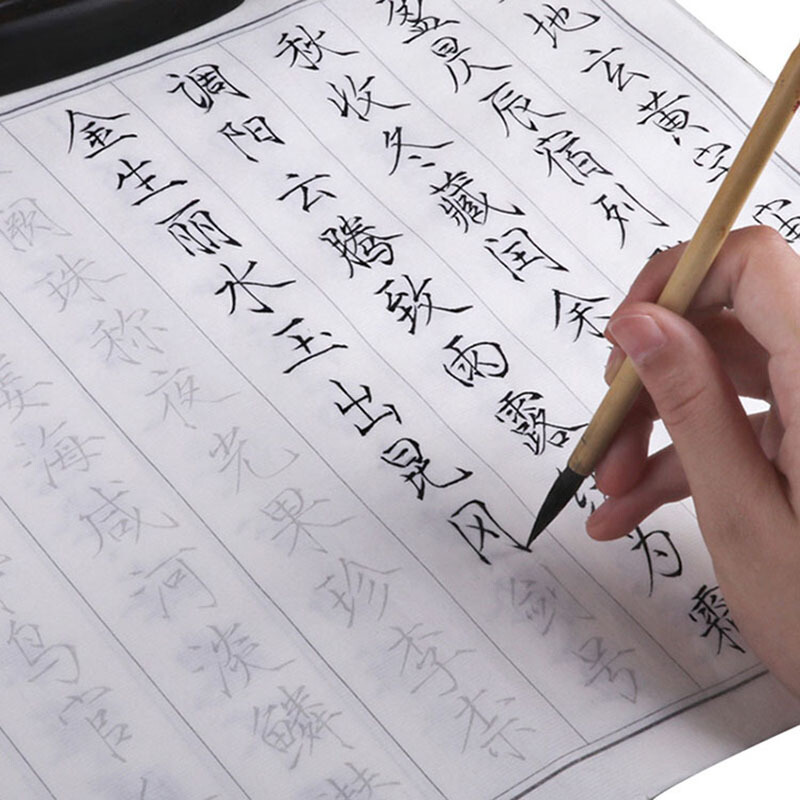 地玄黄宇宙
盈昃辰宿列
秋收冬藏闰余
调阳云腾致雨露为霜
金生丽水玉出昆冈剑号
阙珠称夜光果珍李柰
姜海咸河淡鳞
鸟官